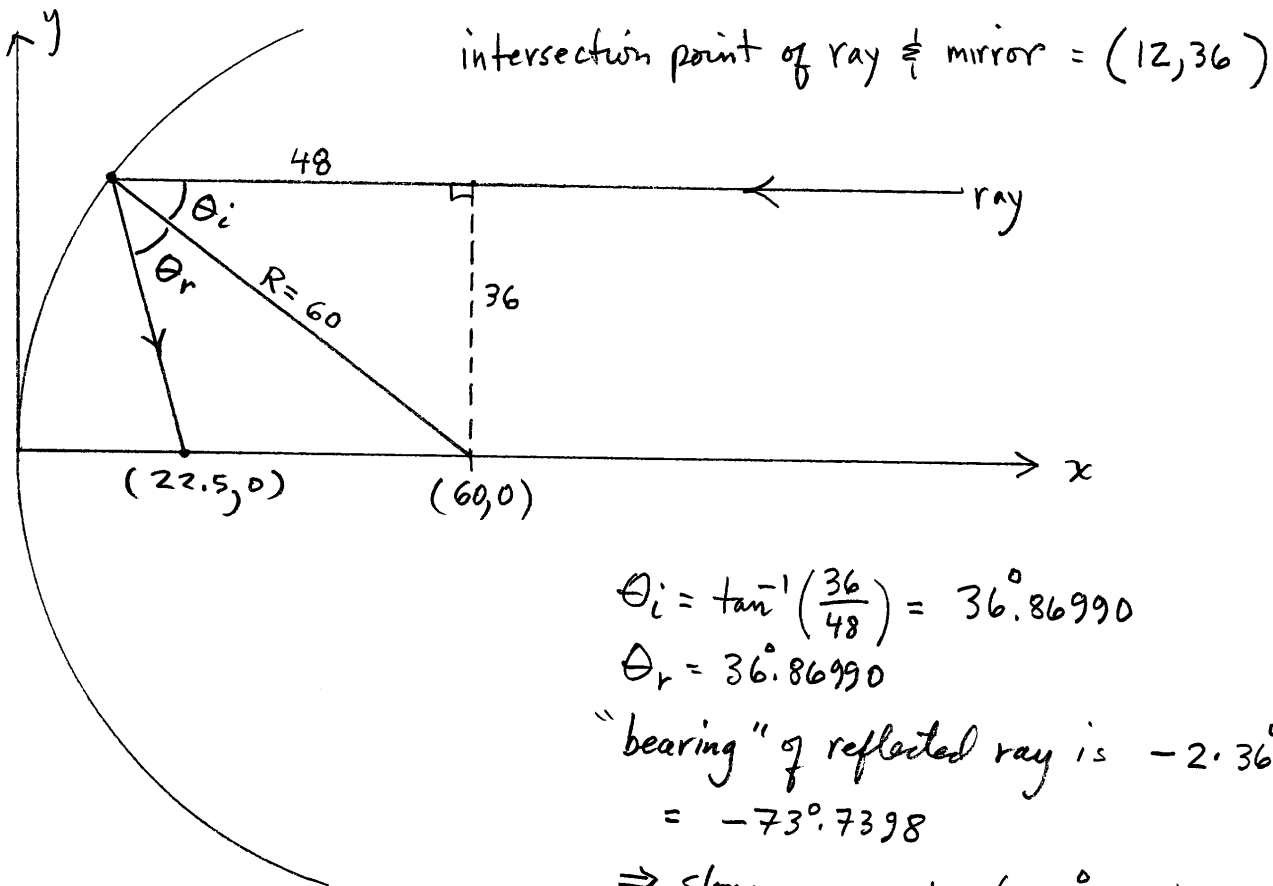 y
intersection point of ray & mirror = (12,36)
48
ray
θi
θr
R=60
36
(22.5,0)
(60,0)
x
θi = tan⁻¹(36/48) = 36°.86990
θr = 36°.86990
"bearing" of reflected ray is -2·36°
= -73°.7398
⇒